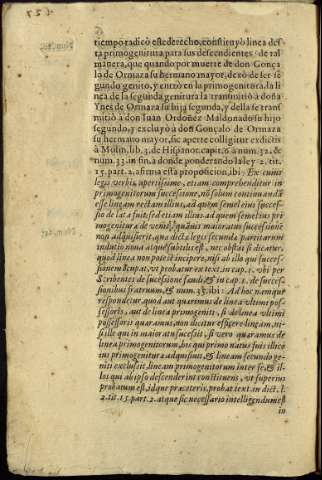 tiempo radicò este derecho, constituyò linea des-
ta primogenitura para sus descendientes: de tal
manera, que quando por muerte de don Gonça
lo de Ormaza su hermano mayor, dexò de ser se
gundo genito, y entrò en la primogenitura, la li
nea de la segunda genitura la transmitiò a doña
Ynes de Ormaza su hija segunda, y della se trans
mitiò a don Iuan Ordoñez Maldonado su hijo
segundo, y excluyò a don Gonçalo de Ormaza
su hermano mayor, sic aperte colligitur ex dictis
à Molin. lib. 3. de Hispanor. capit. 6. à num. 32. &
num. 33. in fin. a donde ponderando la ley 2. tit.
15. part. 2. afirma esta proposicion, ibi: Ex cuius
legis verbis, apertissime, etiam comprehenditur in
primogenitorum successione, nõ solum conditionandũ
esse lineam rectam illius, ad quem semel eius succes-
sio delata fuit, sed etiam illius ad quem semel ius pri
mogenitura devenit, quãvis maioratus successionem
non adquisierit, quæ dictæ legis secunda partitarum
indutio nona atque subtilis est, nec obstat si dicatur,
quod linea non potest incipere, nisi ab illo qui succes-
sionem occupat, vt probatur ex text. in cap. 1. vbi per
Scribentes de successione feudi, & in cap. 1. de succes-
sionibus fratrum, & num. 33. ibi: Ad hoc namque
respondetur, quod aut quærimus de linea vltimi pos-
sessoris, aut de linea primogeniti, si de linea vltimi
possessoris quæramus, non dicitur efficere lineam, ni-
si ille qui in maioratu successit, si vero quæramus de
linea primogenitorum, hos qui primo natus fuit illico
ius primogenituræ adquisiuit, & lineam secundo ge-
niti exclusit, lineam primogenitorum inter se, & il-
los qui ab ipso descenderint constituens, vt superius
probatum est, idque præter ea, probat text. in dict. l.
2. tit. 15. part. 2. atque sic necessario intelligendum est
in